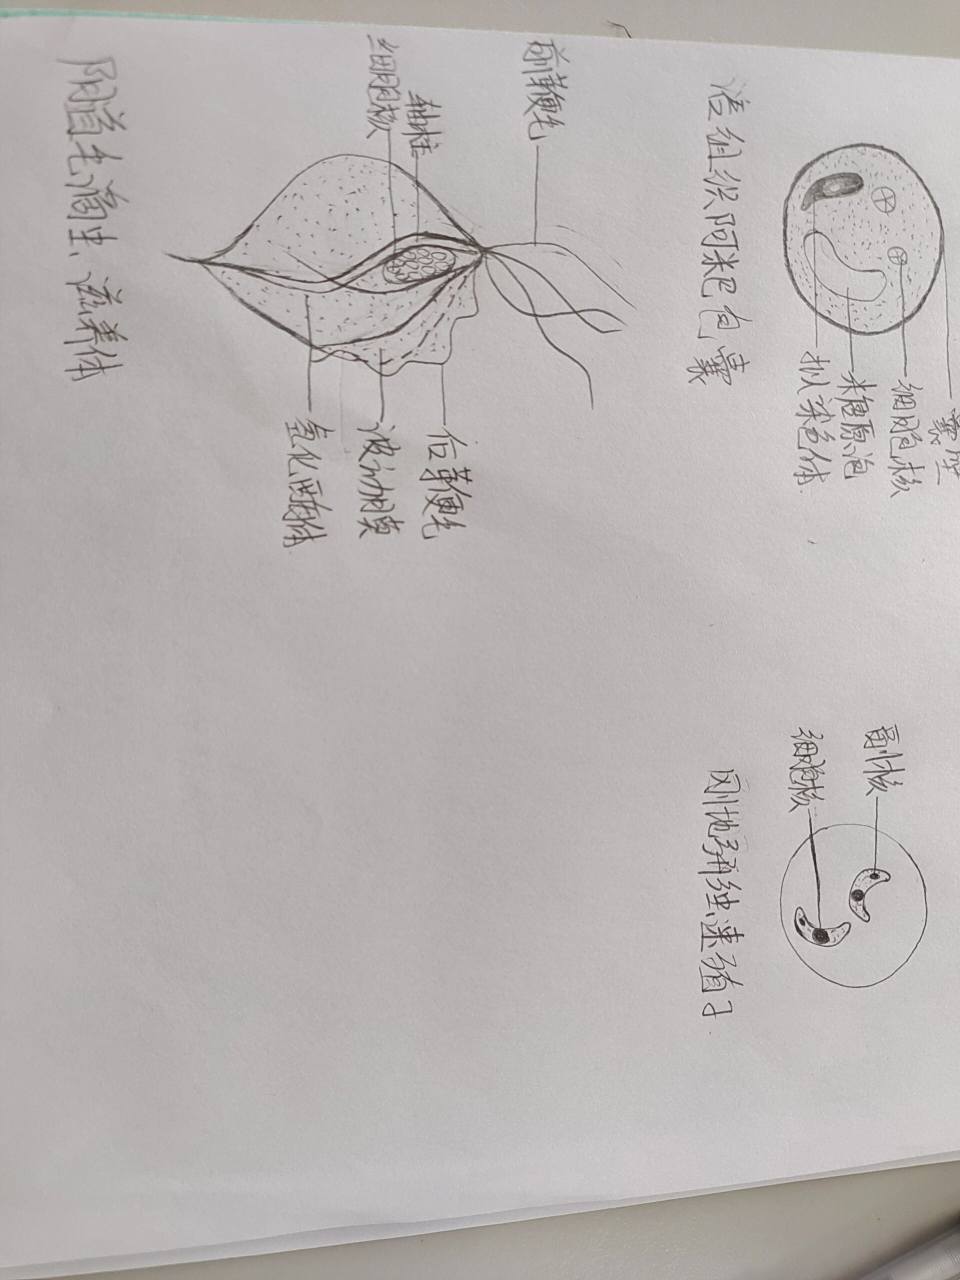 囊壁
细胞核
糖原泡
拟染色体
溶组织阿米巴包囊
副核
细胞核
刚地弓形虫速殖子
前鞭毛
轴柱
细胞核
后鞭毛
波动膜
氢化酶体
阴道毛滴虫滋养体